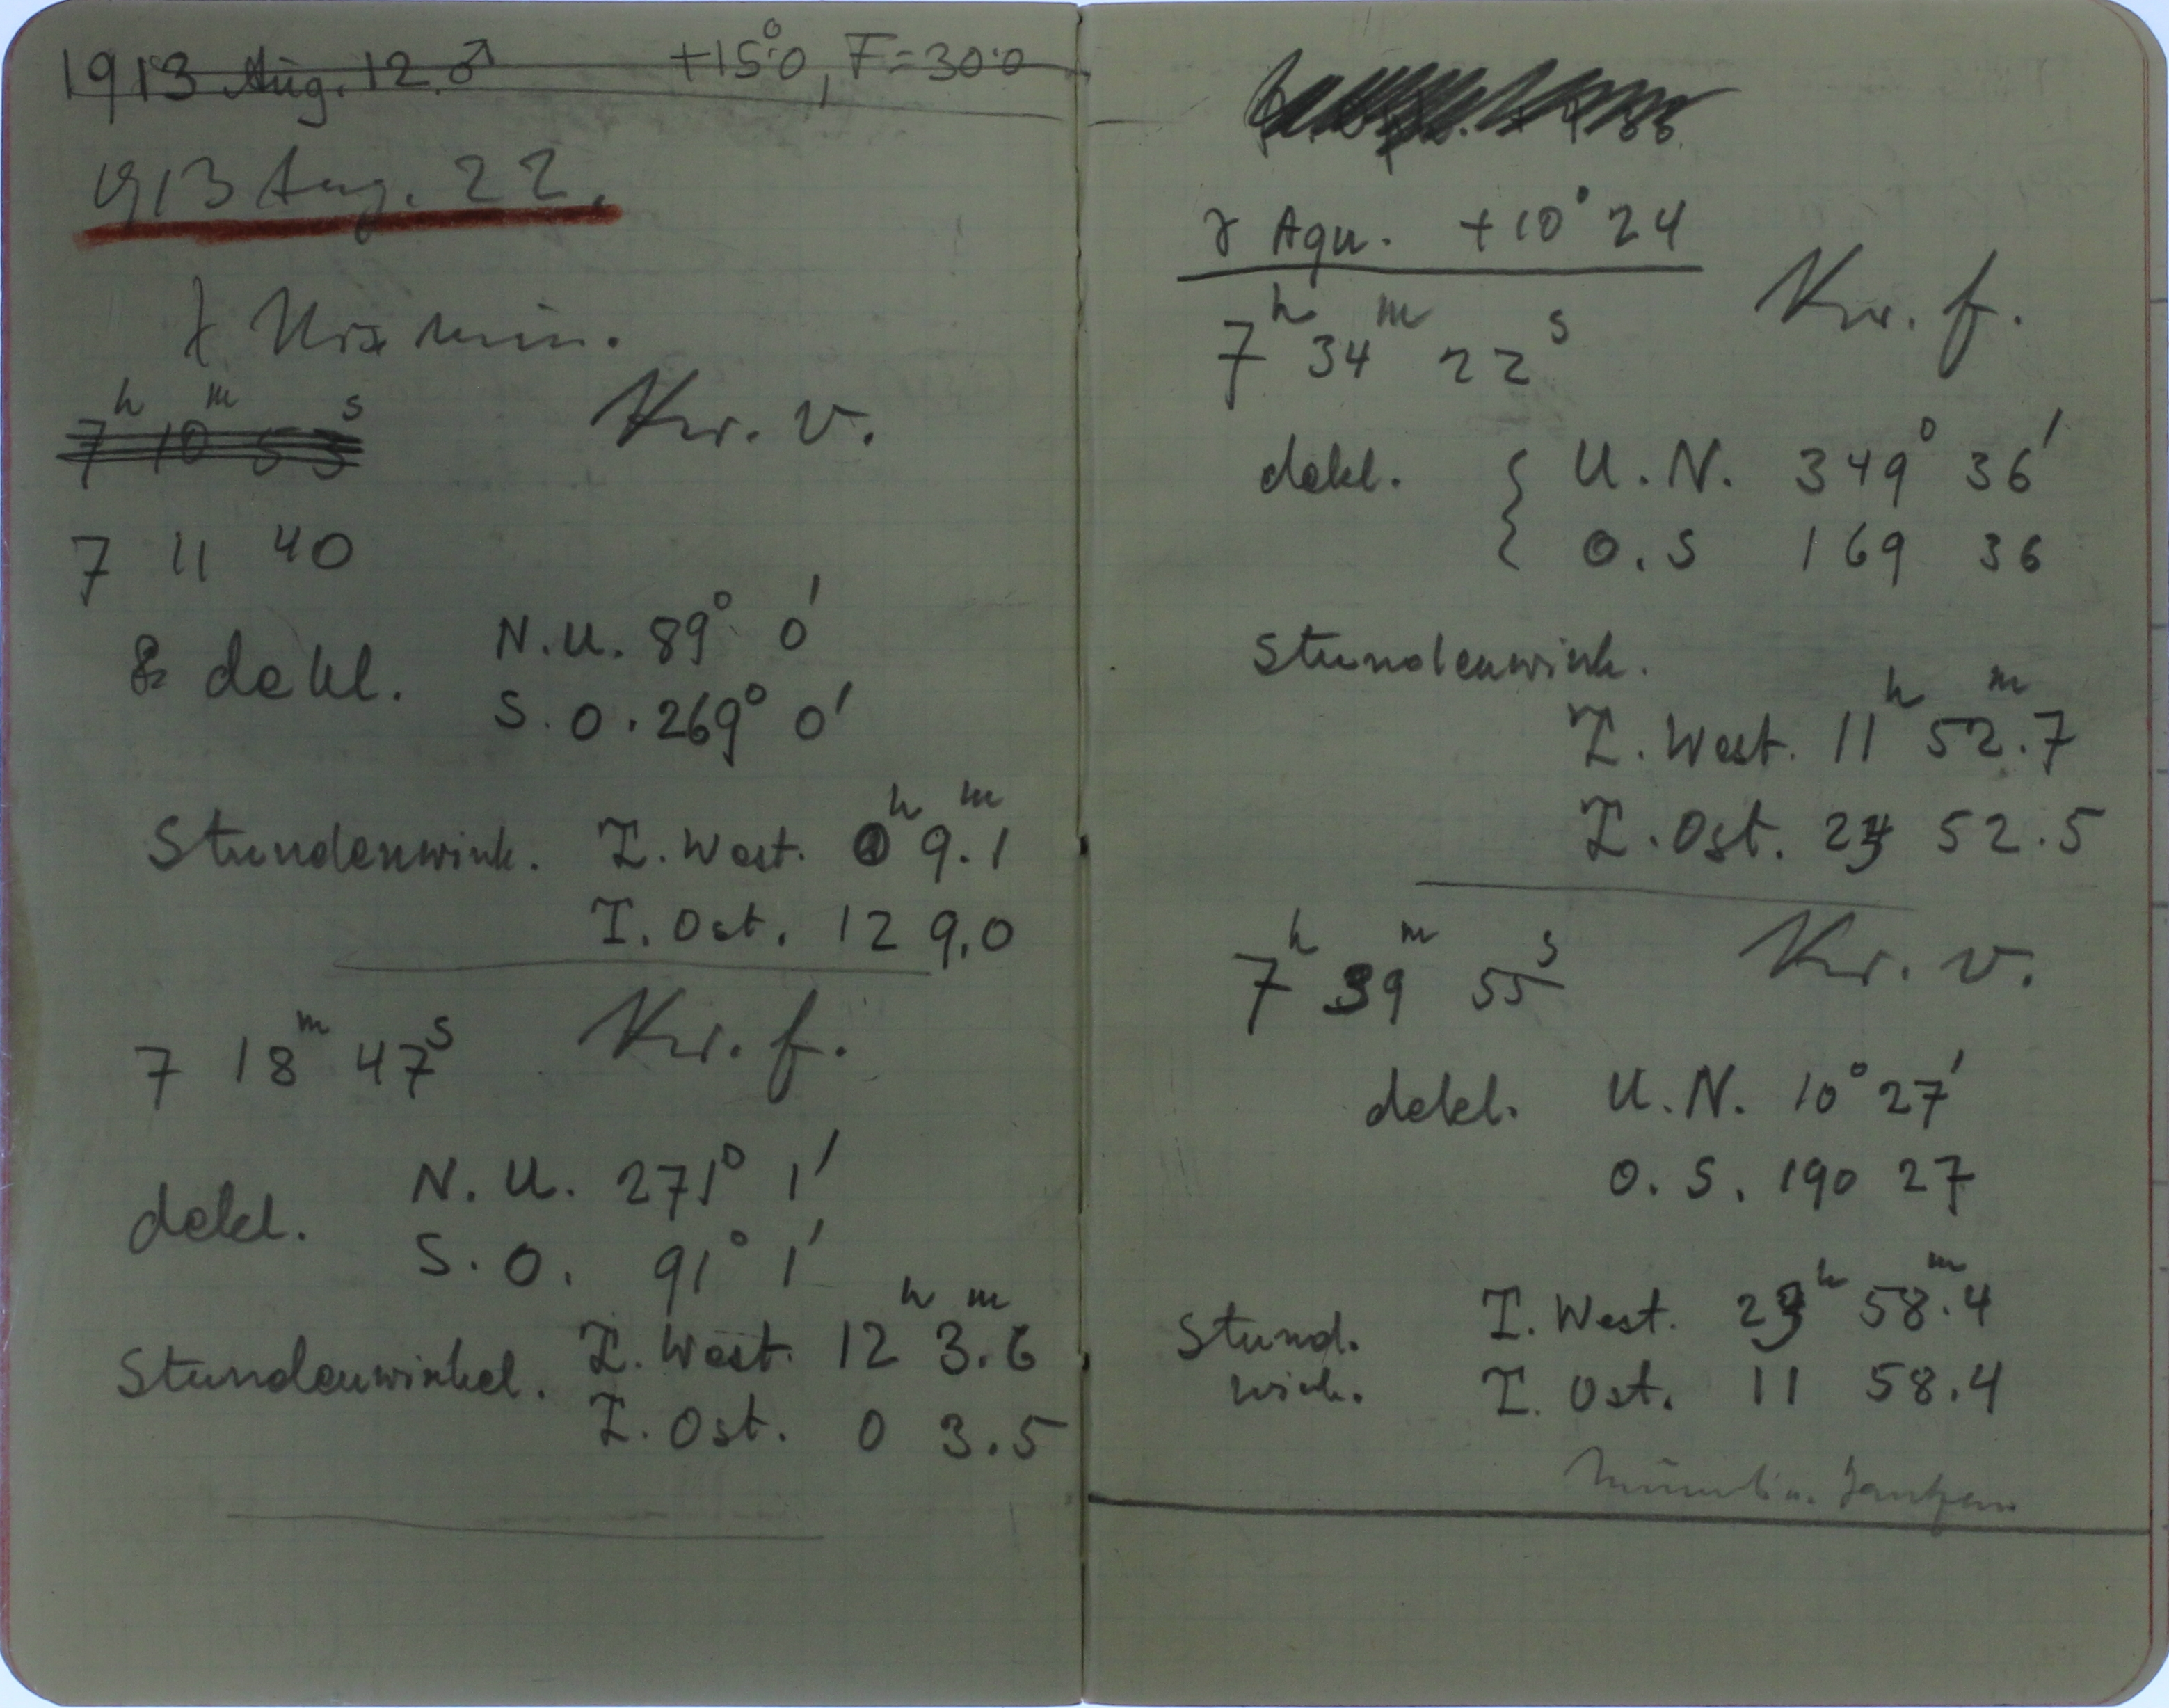 1913 Aug. 12. ♂ +15°.0, F=30.0
1913 Aug. 22.
λ Urs min.
7h 10m 53s Kr. v.
7 11 40
& dekl. N.U. 89° 0'
S.O. 269° 0'
Stundenwink. I. West. 0h 9.1m
I. Ost. 12 9.0
7 18m 47s Kr. f.
dekl. N.U. 271° 1'
S.O. 91° 1'
Stundenwinkel. I. West. 12h 3.6m
I. Ost. 0 3.5
γ Aqu. +10° 24
7h 34m 22s Kr. f.
dekl. { U.N. 349° 36'
O.S 169 36
Stundenwink.
I. West. 11h 52.7m
I. Ost. 23 52.5
7h 39m 55s Kr. v.
dekl. U.N. 10° 27'
O.S. 190 27
Stund. I. West. 23h 58.4m
wink. I. Ost. 11 58.4